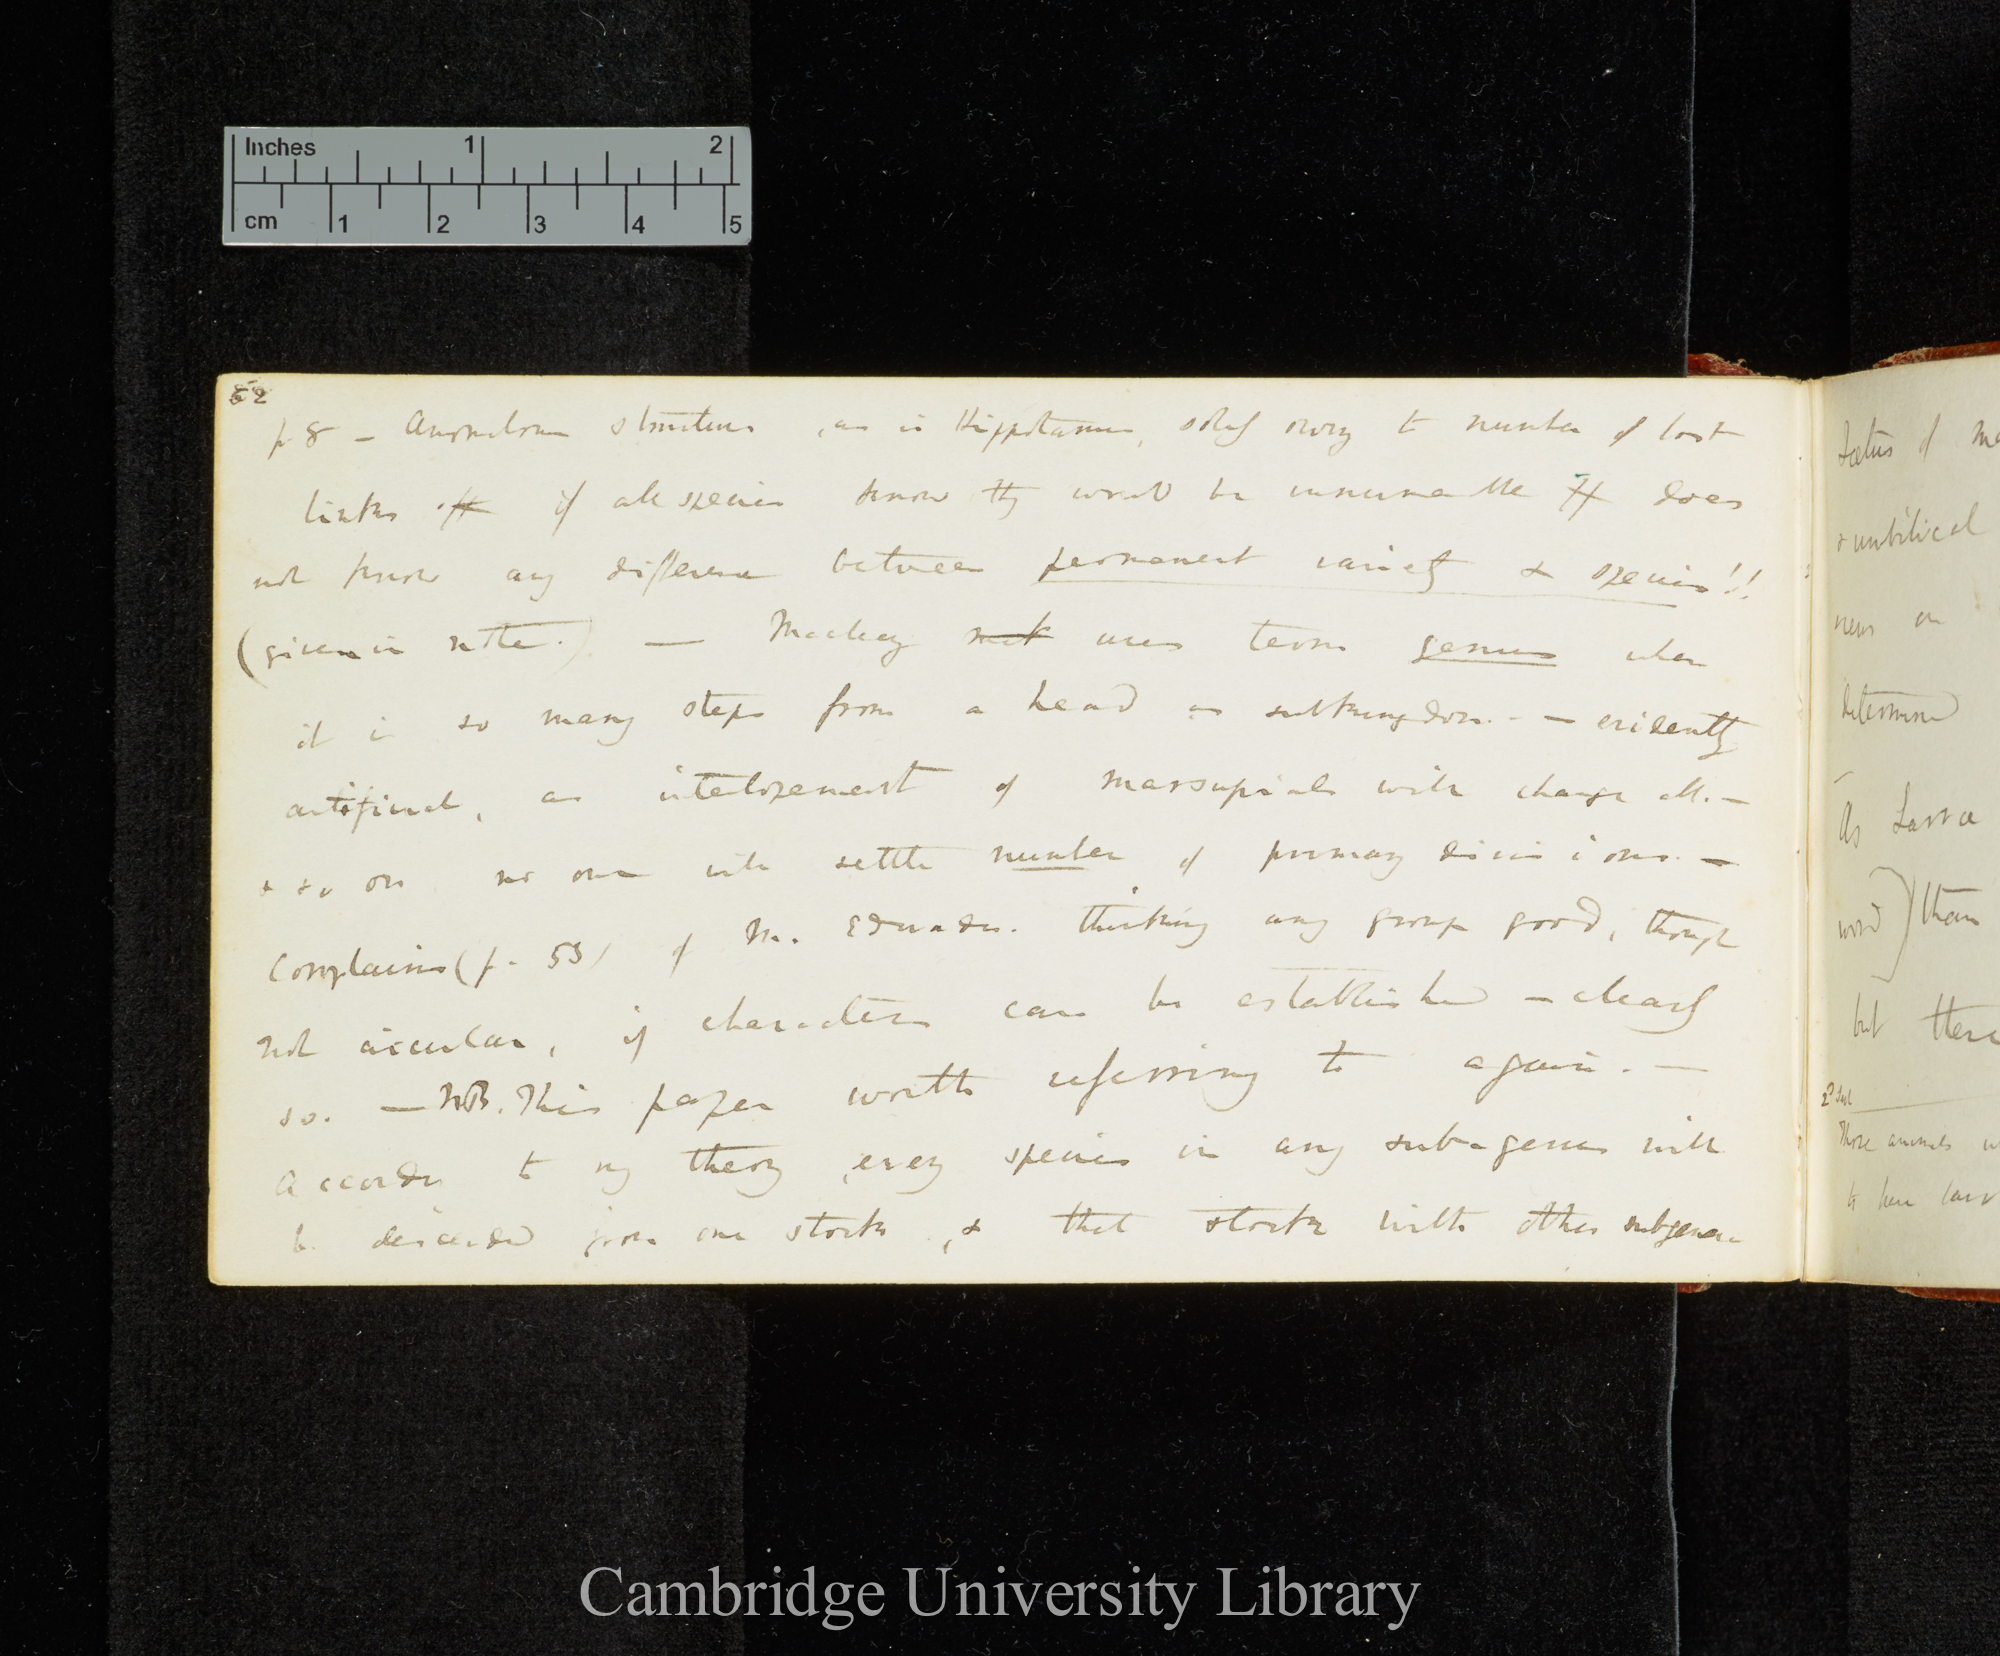 Inches 1 2
cm 1 2 3 4 5
52
p 8 – Anomalous structure, as in Hippotamus, solely owing to number of lost
links if all species know they would be innumerable does
not know any difference between permanent variety & species!!
(given in note.) — Macleay uses term genus when
it is so many steps from a head or subkingdom. – — evidently
artificial, as interlopement of marsupials will change all. —
& so on no one will settle number of primary divisions. —
Complains (p. 53) of M. Edwards. thinking any group good, though
not circular, if characters can be established — clearly
so. — NB. This paper worth referring to again. —
According to my theory, every species in any sub-genus will
be descended from one stock, & that stock with other subgenera
foetus of
& umbilical
news on
determined
As Larva
word) than
but there
Those animals
to have
Cambridge University Library